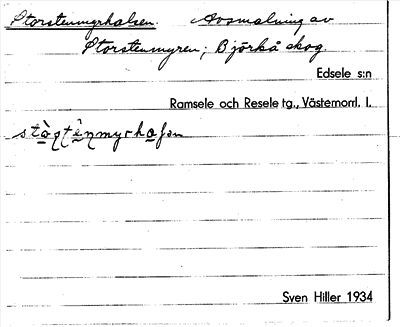 Storstenmyrhalsen. Avsmalning av
Storstenmyren; Björkå skog.
Edsele s:n
Ramsele och Resele tg., Västernorrl. l.
Sven Hiller 1934